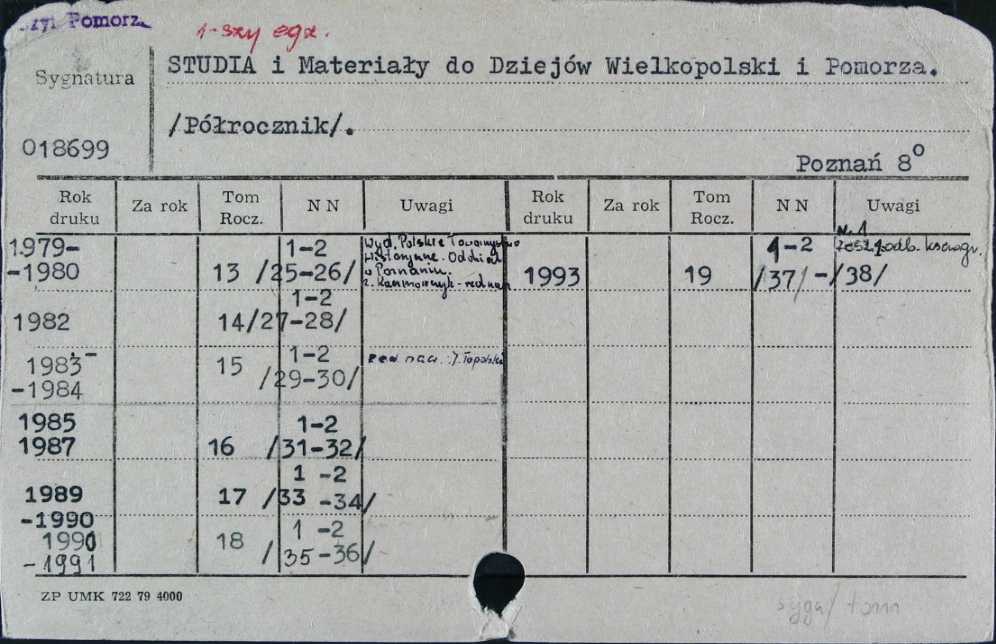 Pomorz
1-szy egz.
Sygnatura
STUDIA i Materiały do Dziejów Wielkopolski i Pomorza.
/Półrocznik/.
018699
Poznań 8°
Rok druku Za rok Tom Rocz. N N Uwagi Rok druku Za rok Tom Rocz. N N Uwagi
1979- 1-2 Wyd. Polskie Towarzystwo 1-2 Nr 1
-1980 13 /25-26/ Historyczne. Oddział w Poznaniu. 1993 19 /37/-/38/
1-2
1982 14/27-28/
1983- 15 1-2 Red. nacz. : J. Topolski
-1984 /29-30/
1985 1-2
1987 16 /31-32/
1 -2
1989 17 /33 -34/
-1990
1990 18 1 -2
-1991 /35-36/
ZP UMK 722 79 4000
syga/ tom